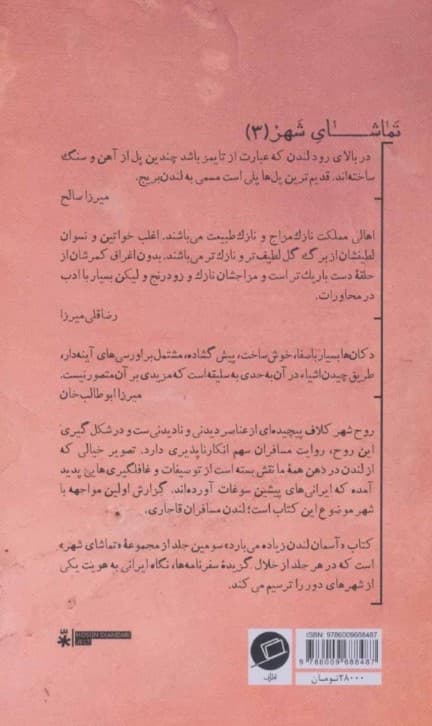 تماشای شهر (۳)
در بالای رود لندن که عبارت از تایمز باشد چندین پل از آهن و سنگ
ساخته‌اند. قدیم‌ترین پل‌ها پلی است مسمی به لندن‌بریج.
میرزا صالح
اهالی مملکت نازک‌مزاج و نازک‌طبیعت می‌باشند. اغلب خواتین و نسوان
لطیفشان از برگ گل لطیف‌تر و نازک‌تر می‌باشند. بدون اغراق کمرشان از
حلقهٔ دست باریک‌تر است و مزاجشان نازک و زودرنج و لیکن بسیار با ادب
در محاورات.
رضاقلی میرزا
دکان‌ها بسیار باصفا، خوش‌ساخت، پیش گشاده، مشتمل بر اورسی‌های آینه‌دار،
طریق چیدن اشیاء در آن به‌حدی به سلیقه است که مزیدی بر آن متصور نیست.
میرزا ابوطالب‌خان
روح شهر کلاف پیچیده‌ای از عناصر دیدنی و نادیدنی‌ست و در شکل‌گیری
این روح، روایت مسافران سهم انکارناپذیری دارد. تصویر خیالی که
از لندن در ذهن همهٔ ما نقش بسته است از توصیفات و غافلگیری‌هایی پدید
آمده که ایرانی‌های پیشین سوغات آورده‌اند. گزارش اولین مواجهه با
شهر موضوع این کتاب است؛ لندن مسافران قاجاری.
کتاب «آسمان لندن زیاده می‌بارد» سومین جلد از مجموعهٔ «تماشای شهر»
است که در هر جلد از خلال گزیدهٔ سفرنامه‌ها، نگاه ایرانی به هویت یکی
از شهرهای دور را ترسیم می‌کند.
ISBN: 9786009688487
9 786009 688487
۲۸۰۰۰ تومان